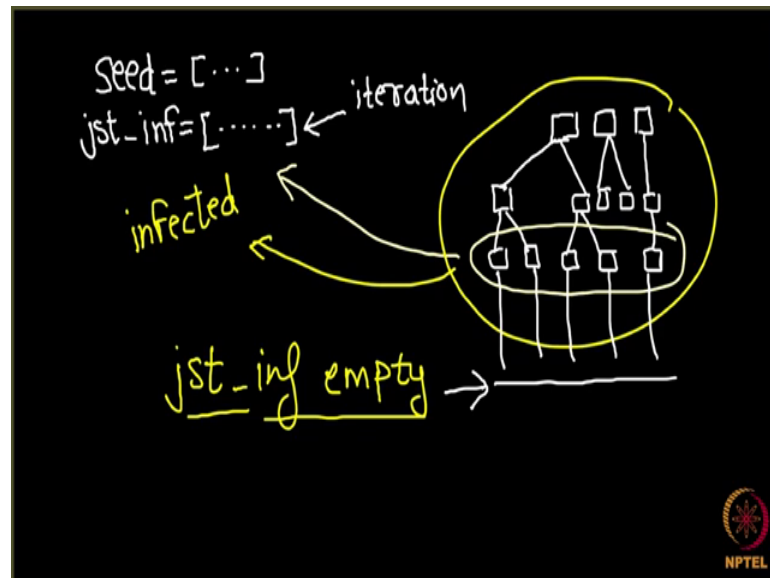 seed = [...]
jst_inf = [......] ← iteration
infected
jst_inf empty →
NPTEL